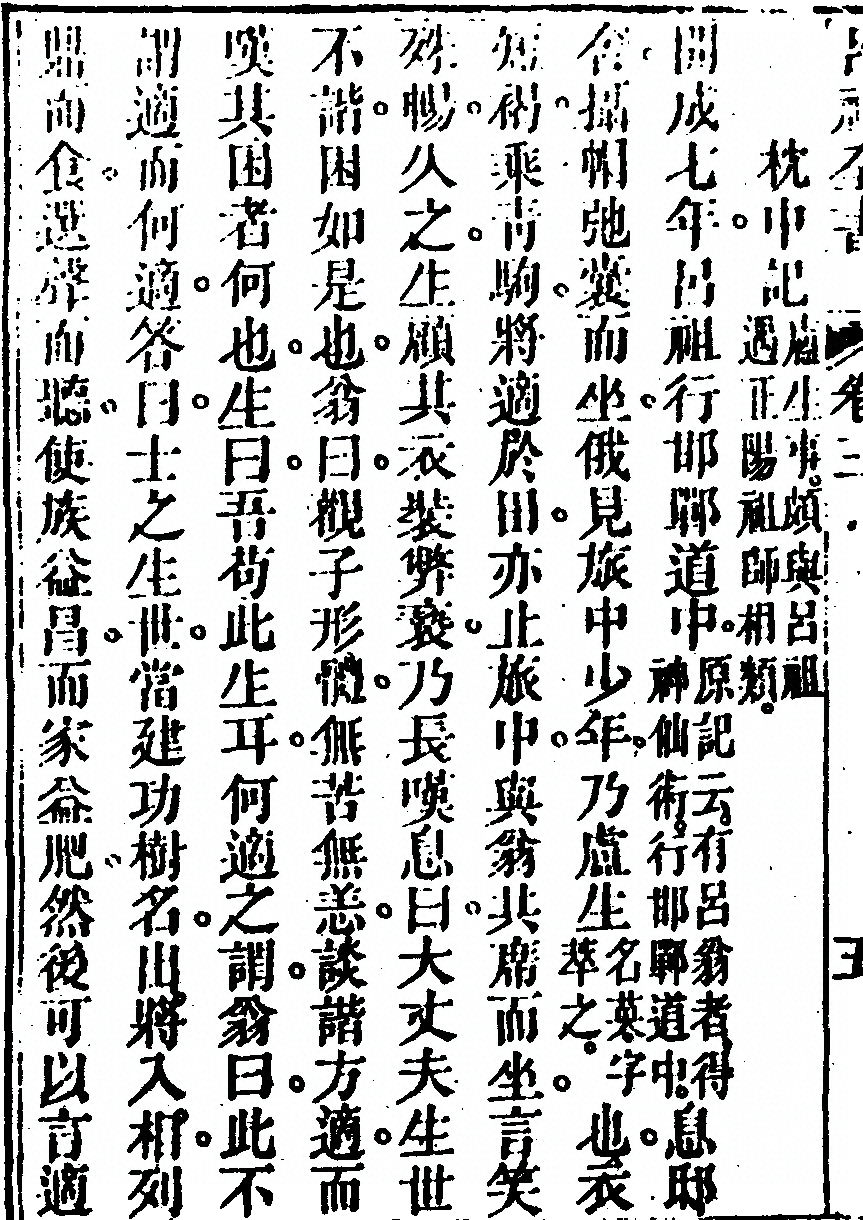 呂祖全書 卷三 五
枕中記 盧生事。頗與呂祖遇正陽祖師相類。
開成七年。呂祖行邯鄲道中。原記云。有呂翁者得神仙術。行邯鄲道中。息邸
舍攝帽弛囊而坐。俄見旅中少年。乃盧生名英。字萃之。也。衣
短褐。乘青駒。將適於田。亦止旅中。與翁共席而坐。言笑
殊暢。久之。生顧其衣裝弊褻。乃長嘆息曰。大丈夫生世
不諧。困如是也。翁曰。觀子形體。無苦無恙。談諧方適。而
嘆其困者何也。生曰。吾苟此生耳。何適之謂。翁曰。此不
謂適而何適。答曰。士之生世。當建功樹名。出將入相。列
鼎而食。選聲而聽。使族益昌。而家益肥。然後可以言適